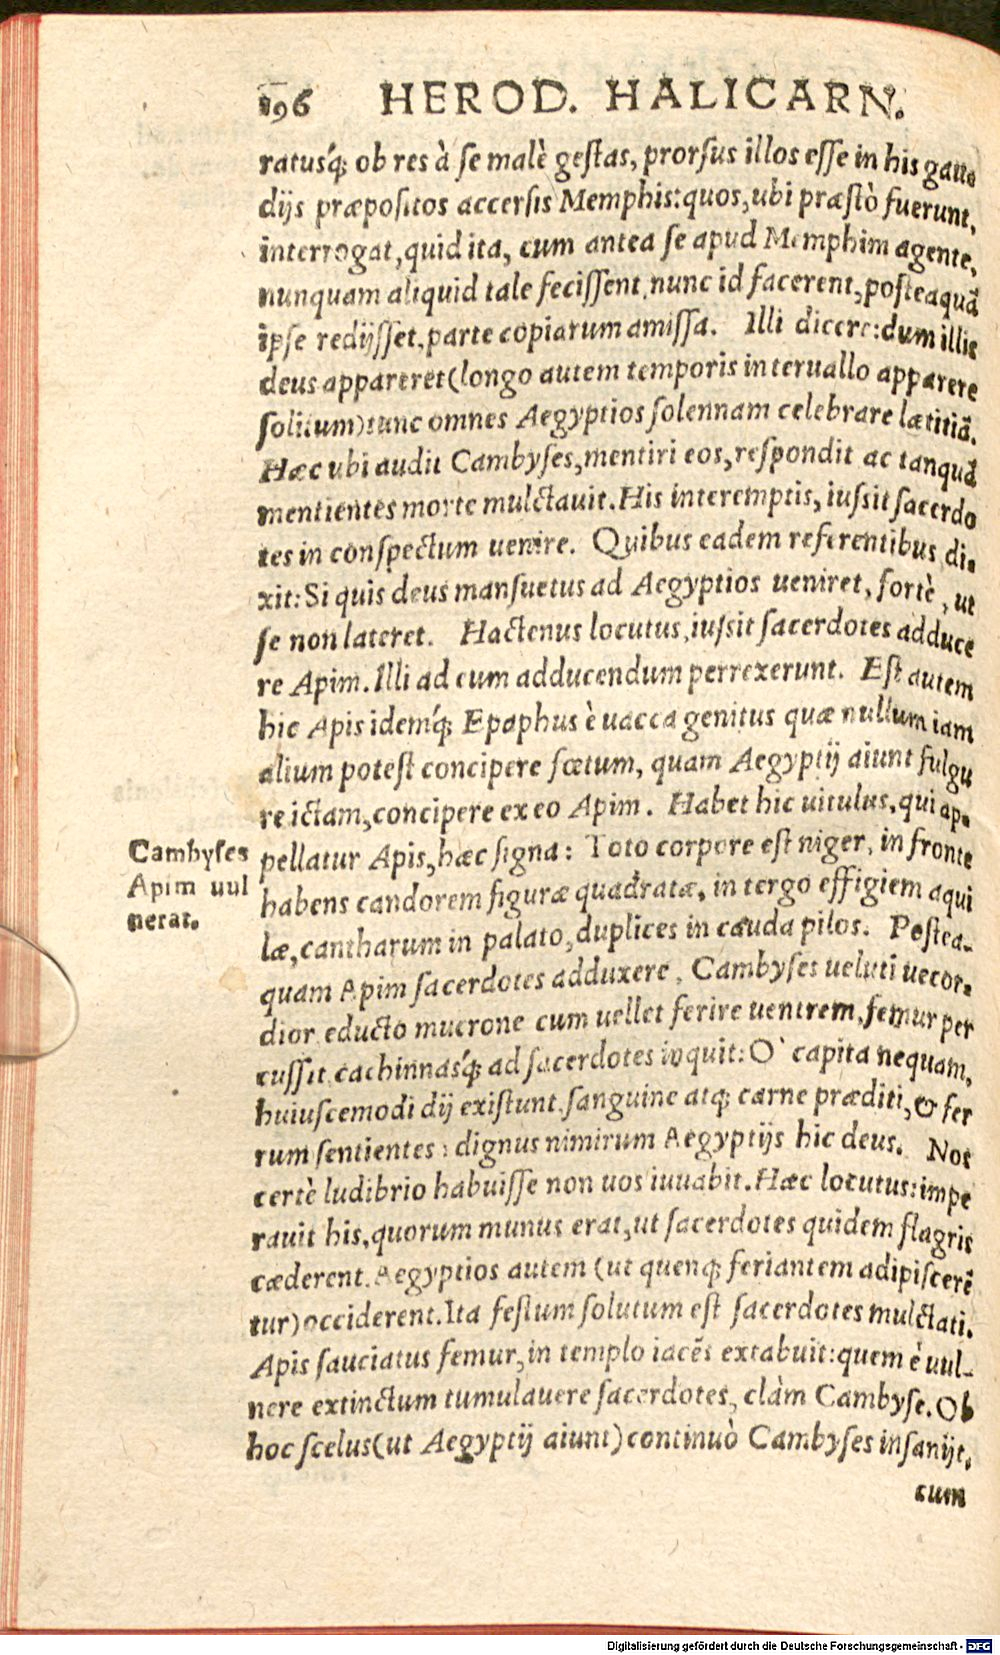 196 HEROD. HALICARN.
ratusq́; ob res à se malè gestas, prorsus illos esse in his gau
dijs præpositos accersis Memphis: quos, ubi præstò fuerunt,
interrogat, quid ita, cum antea se apud Memphim agente,
nunquam aliquid tale fecissent, nunc id facerent, posteaquã
ipse redijsset, parte copiarum amissa. Illi dicere: dum illis
deus appareret (longo autem temporis interuallo apparere
solitum) tunc omnes Aegyptios solennam celebrare lætitiã.
Hæc ubi audit Cambyses, mentiri eos, respondit ac tanquã
mentientes morte mulctauit. His interemptis, iussit sacerdo
tes in conspectum uenire. Quibus eadem referentibus, di-
xit: Si quis deus mansuetus ad Aegyptios ueniret, fortè, ut
se non lateret. Hactenus locutus, iussit sacerdotes adduce
re Apim. Illi ad eum adducendum perrexerunt. Est autem
hic Apis idemq́; Epaphus è uacca genitus quæ nullum iam
alium potest concipere fœtum, quam Aegyptij aiunt fulgu
re ictam, concipere ex eo Apim. Habet hic uitulus, qui ap-
pellatur Apis, hæc signa: Toto corpore est niger, in fronte
habens candorem figuræ quadratæ, in tergo effigiem aqui
læ, cantharum in palato, duplices in cauda pilos. Postea-
quam Apim sacerdotes adduxere, Cambyses ueluti uecor-
dior educto mucrone cum uellet ferire uentrem, femur per
cussit, cachinnasq́; ad sacerdotes inquit: O` capita nequam,
huiuscemodi dij existunt, sanguine atq; carne præditi, & fer
rum sentientes: dignus nimirum Aegyptijs hic deus. Nos
certè ludibrio habuisse non uos iuuabit. Hæc locutus: impe
rauit his, quorum munus erat, ut sacerdotes quidem flagris
cæderent. Aegyptios autem (ut quenq; feriantem adipiscerẽ
tur) occiderent. Ita festum solutum est sacerdotes mulctati.
Apis sauciatus femur, in templo iacẽs extabuit: quem è uul-
nere extinctum tumulauere sacerdotes, clàm Cambyse. Ob
hoc scelus (ut Aegyptij aiunt) continuò Cambyses insanijt,
cum
Cambyses
Apim uul
nerat.
Digitalisierung gefördert durch die Deutsche Forschungsgemeinschaft - DFG